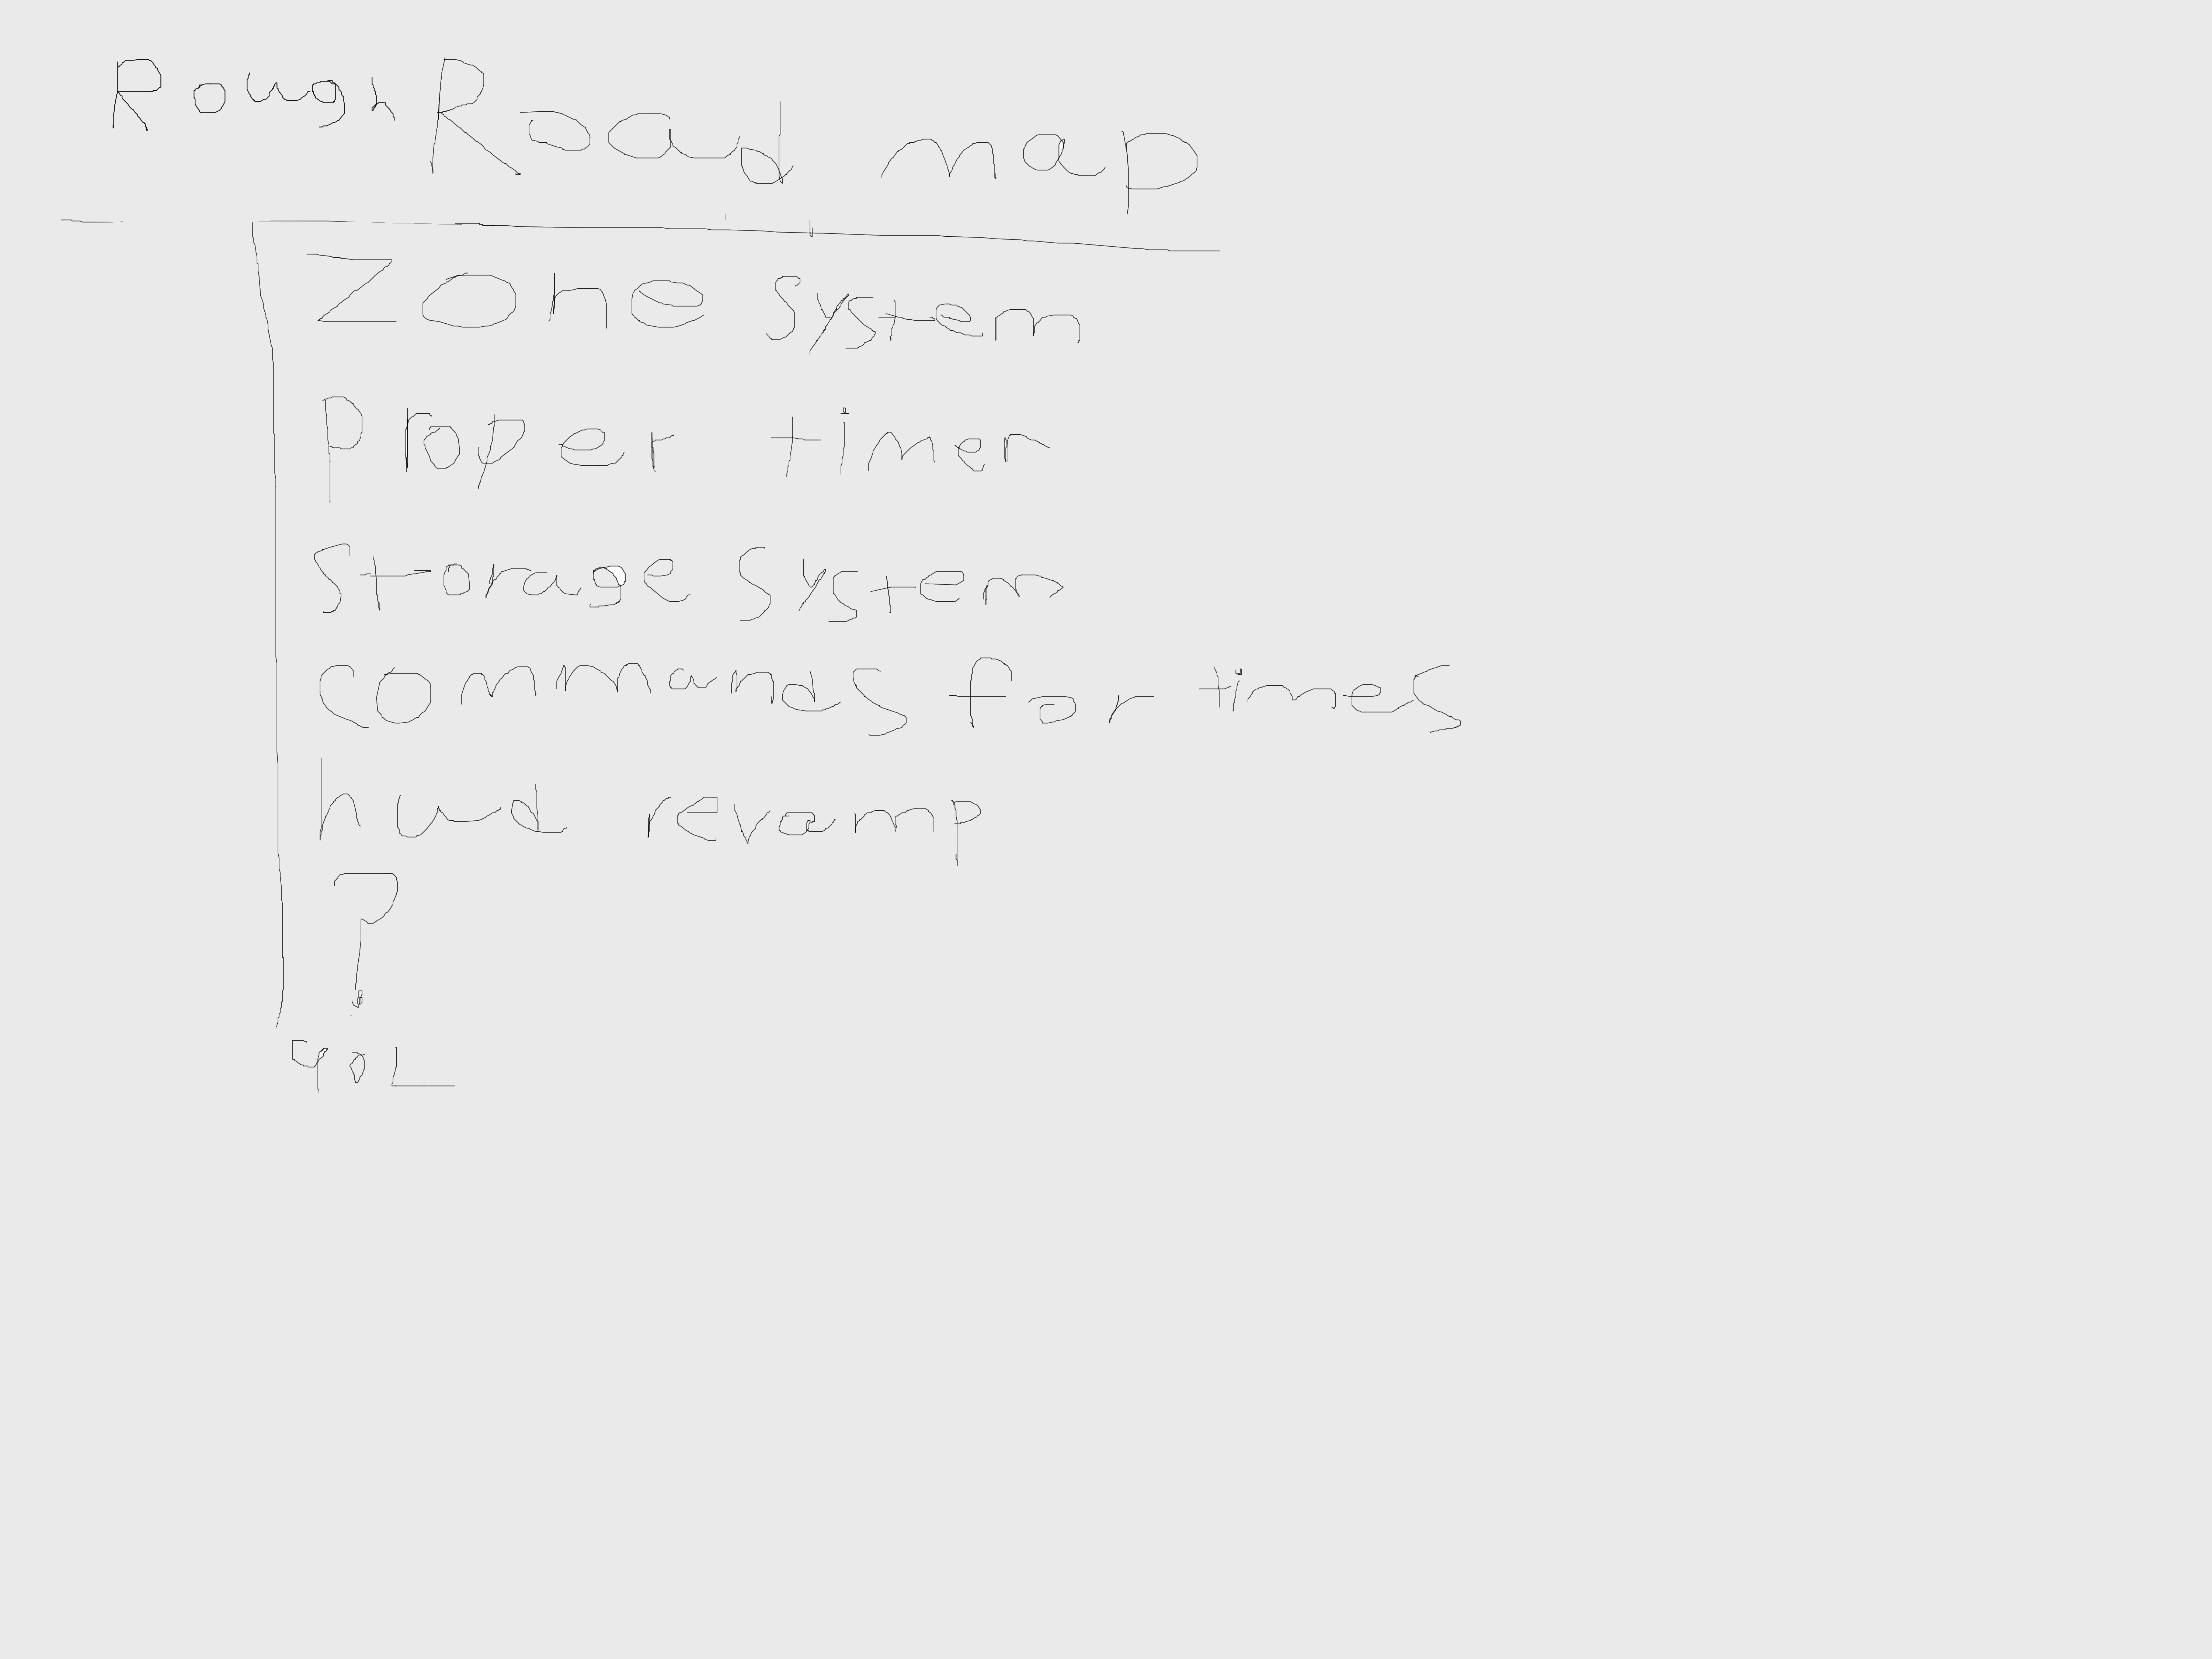 Rough Road map
Zone system
Proper timer
Storage System
commands for times
hud revamp
?
qoL